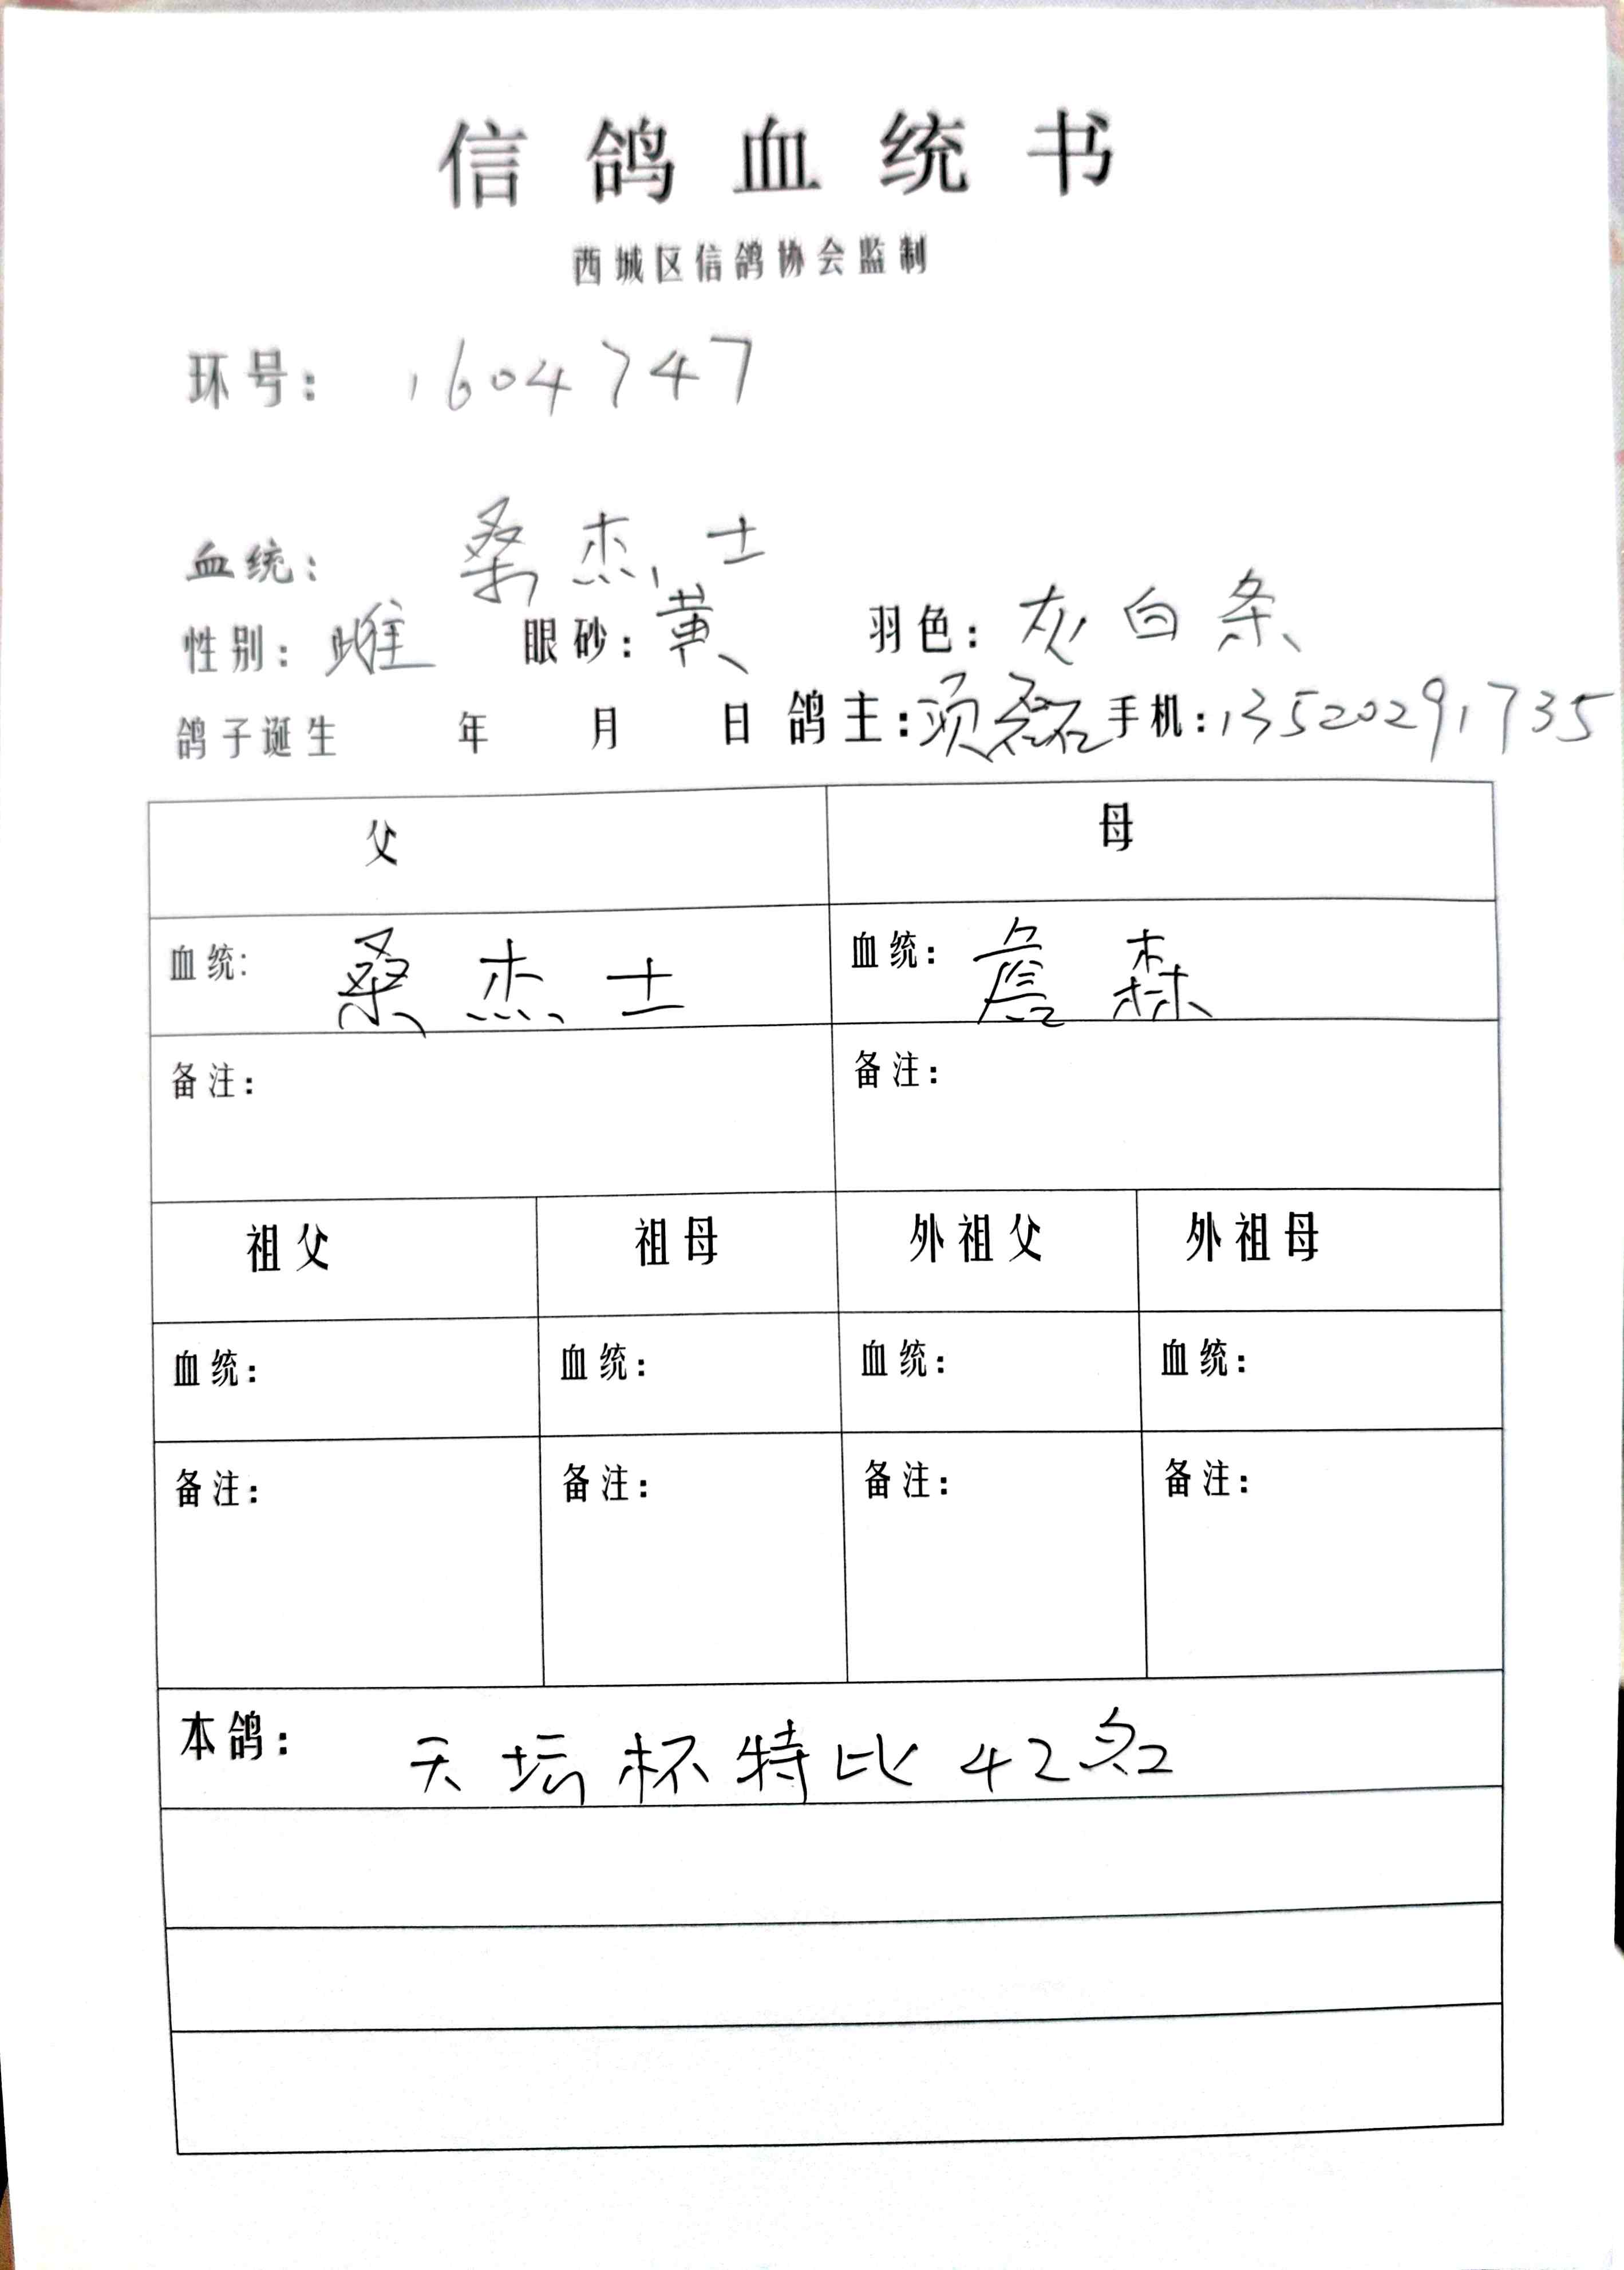 信鸽血统书
西城区信鸽协会监制
环号： 1604747
血统： 桑杰士
性别：雌 眼砂：黄 羽色：灰白条
鸽子诞生 年 月 日 鸽主：须磊 手机：13520291735
父 母
血统： 桑杰士 血统：詹森
备注： 备注：
祖父 祖母 外祖父 外祖母
血统： 血统： 血统： 血统：
备注： 备注： 备注： 备注：
本鸽： 天坛杯特比42名